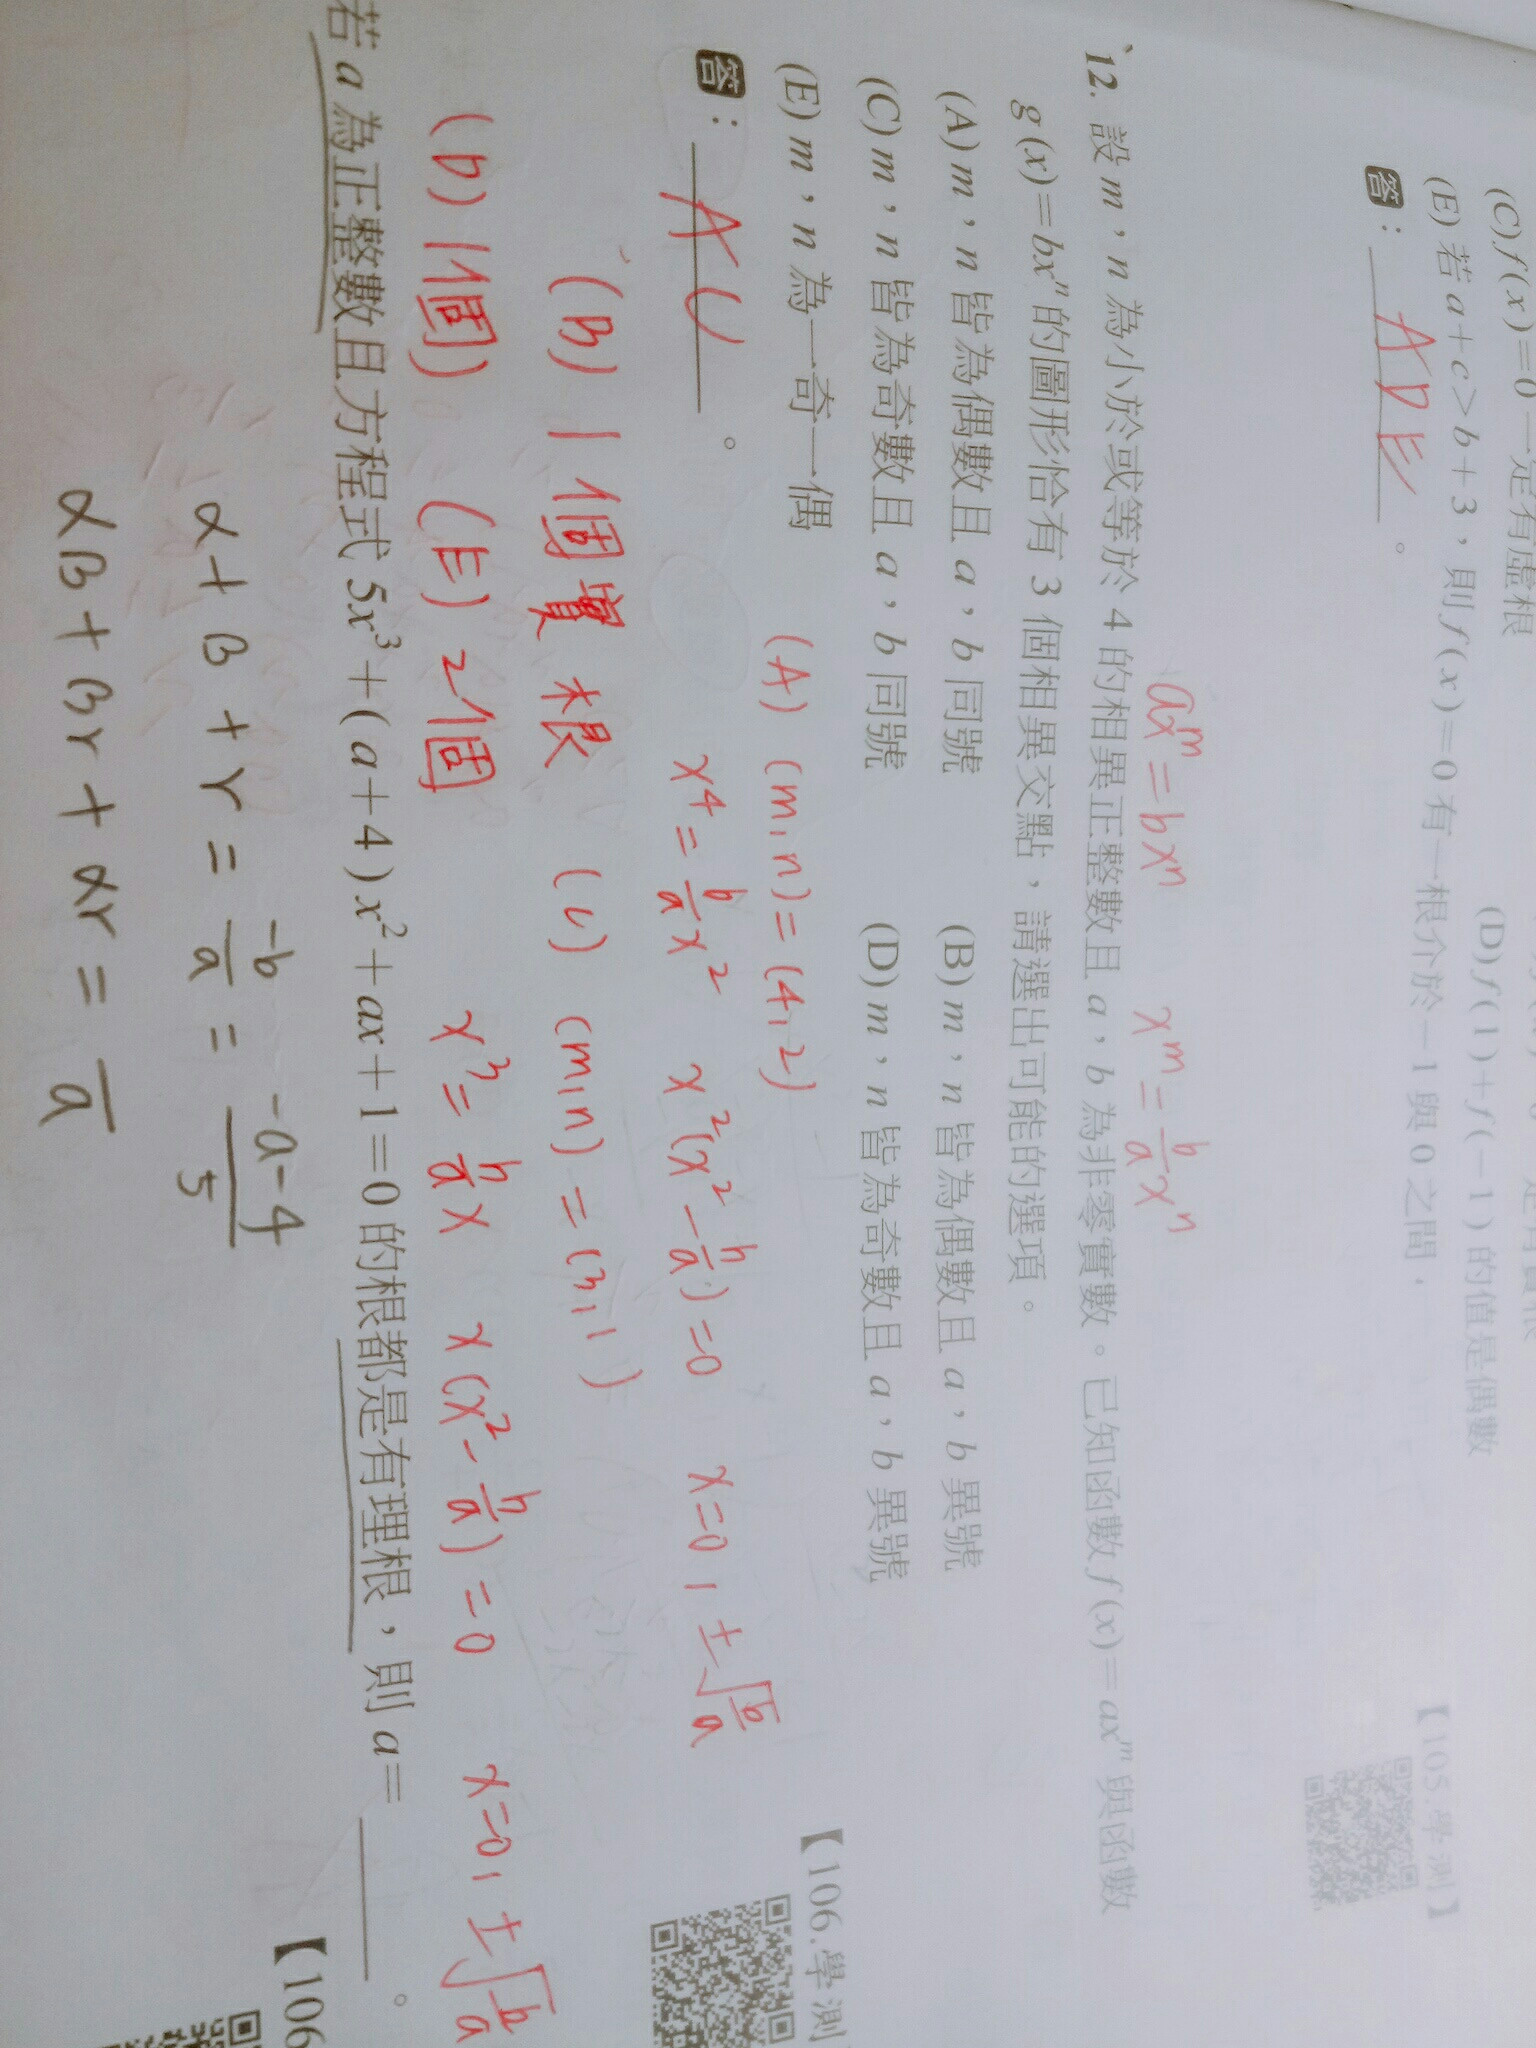 (C) f(x)=0一定有虛根
(D) f(1)+f(-1)的值是偶數
(E) 若a+c>b+3，則f(x)=0有一根介於-1與0之間，
【105.學測】
答： ADE 。
axᵐ=bxⁿ xᵐ=b/a xⁿ
12. 設m，n為小於或等於4的相異正整數且a，b為非零實數。已知函數f(x)=axᵐ與函數
g(x)=bxⁿ的圖形恰有3個相異交點，請選出可能的選項。
(A) m，n皆為偶數且a，b同號 (B) m，n皆為偶數且a，b異號
(C) m，n皆為奇數且a，b同號 (D) m，n皆為奇數且a，b異號
(E) m，n為一奇一偶
【106.學測
(A) (m,n)=(4,2)
答： AC 。
x⁴=b/a x² x²(x²-b/a)=0 x=0, ±√(b/a)
(B) 1個實根 (C) (m,n)=(3,1)
(D) 1個 (E) 2個 x³=b/a x x(x²-b/a)=0 x=0, ±√(b/a)
若a為正整數且方程式5x³+(a+4)x²+ax+1=0的根都是有理根，則a= 。
【106
α+β+γ=-b/a=-a-4/5
αβ+βγ+αγ= /a